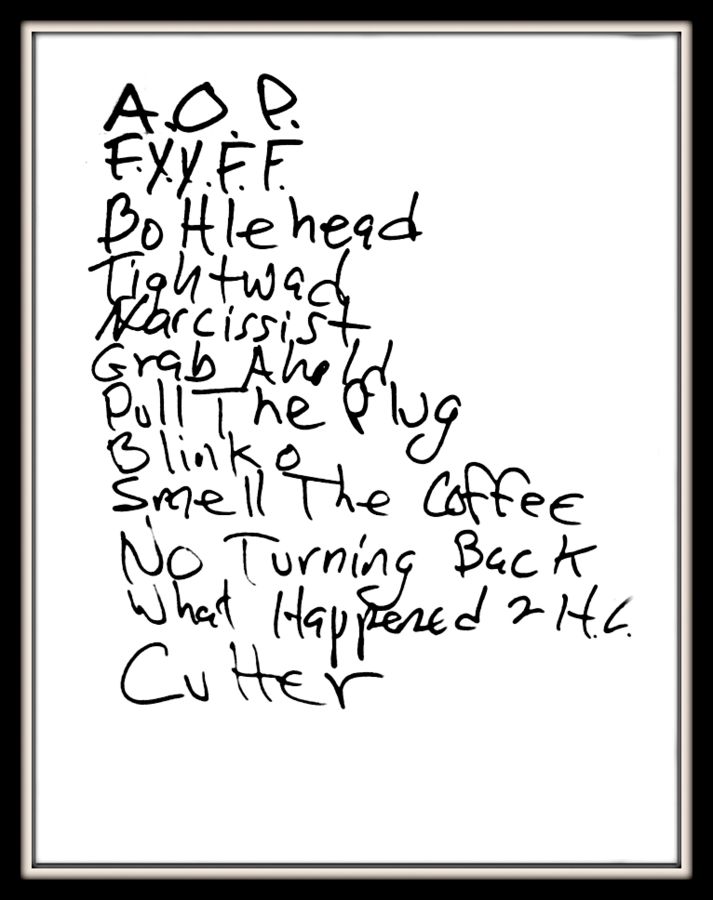 A.O.P.
F.Y.Y.F.F.
Bottlehead
Tightwad
Narcissist
Grab Ahold
Pull The Plug
Blinko
Smell The Coffee
No Turning Back
What Happened 2 H.C.
Cutter